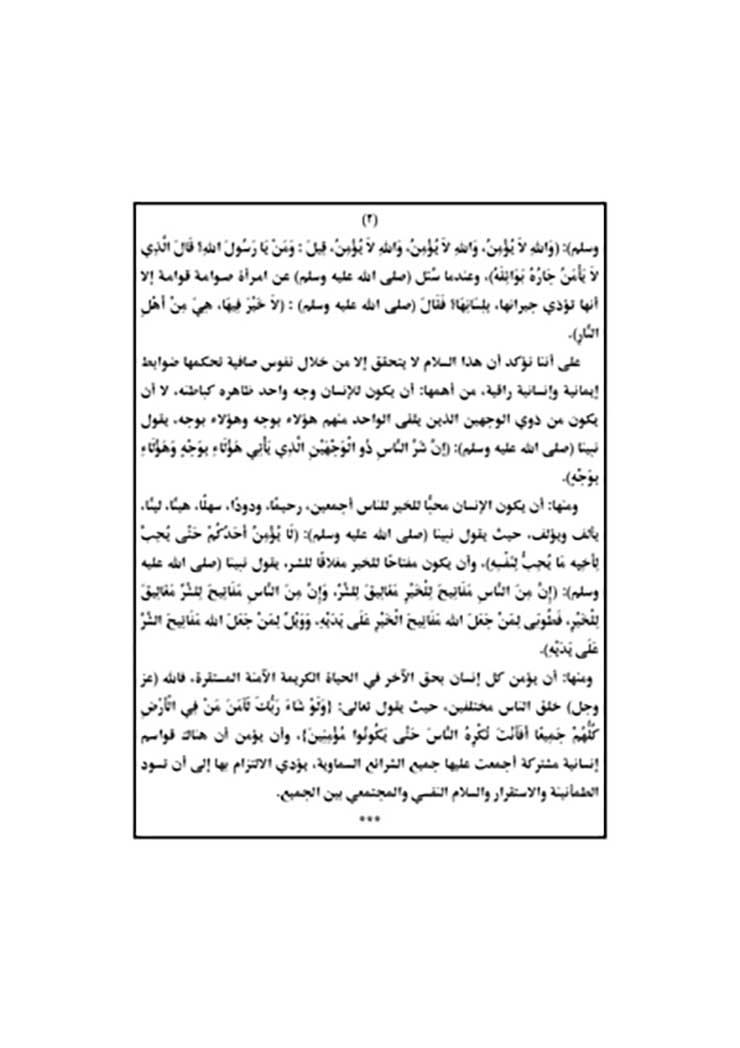 (٢)
وسلم): (وَاللهِ لاَ يُؤْمِنُ، وَاللهِ لاَ يُؤْمِنُ، وَاللهِ لاَ يُؤْمِنُ، قِيلَ : وَمَنْ يَا رَسُولَ اللهِ؟ قَالَ الَّذِي
لاَ يَأْمَنُ جَارُهُ بَوَائِقَهُ)، وعندما سُئل (صلى الله عليه وسلم) عن امرأة صوامة قوامة إلا
أنها تؤذي جيرانها، بِلِسَانِهَا؟ فَقَالَ (صلى الله عليه وسلم) : (لاَ خَيْرَ فِيهَا، هِيَ مِنْ أَهْلِ
النَّارِ).
على أننا نؤكد أن هذا السلام لا يتحقق إلا من خلال نفوس صافية تحكمها ضوابط
إيمانية وإنسانية راقية، من أهمها: أن يكون للإنسان وجه واحد ظاهره كباطنه، لا أن
يكون من ذوي الوجهين الذين يلقى الواحد منهم هؤلاء بوجه وهؤلاء بوجه، يقول
نبينا (صلى الله عليه وسلم): (إنَّ شَرَّ النَّاسِ ذُو الْوَجْهَيْنِ الَّذِي يَأْتِي هَؤُلَاءِ بِوَجْهٍ وَهَؤُلَاءِ
بِوَجْهٍ).
ومنها: أن يكون الإنسان محبًّا للخير للناس أجمعين، رحيمًا، ودودًا، سهلًا، هينًا، لينًا،
يألف ويؤلف، حيث يقول نبينا (صلى الله عليه وسلم): (لَا يُؤْمِنُ أَحَدُكُمْ حَتَّى يُحِبَّ
لِأَخِيهِ مَا يُحِبُّ لِنَفْسِهِ)، وأن يكون مفتاحًا للخير مغلاقًا للشر، يقول نبينا (صلى الله عليه
وسلم): (إِنَّ مِنَ النَّاسِ مَفَاتِيحَ لِلْخَيْرِ مَغَالِيقَ لِلشَّرِّ، وَإِنَّ مِنَ النَّاسِ مَفَاتِيحَ لِلشَّرِّ مَغَالِيقَ
لِلْخَيْرِ، فَطُوبَى لِمَنْ جَعَلَ الله مَفَاتِيحَ الْخَيْرِ عَلَى يَدَيْهِ، وَوَيْلٌ لِمَنْ جَعَلَ الله مَفَاتِيحَ الشَّرِّ
عَلَى يَدَيْهِ).
ومنها: أن يؤمن كل إنسان بحق الآخر في الحياة الكريمة الآمنة المستقرة، فالله (عز
وجل) خلق الناس مختلفين، حيث يقول تعالى: {وَلَوْ شَاءَ رَبُّكَ لَآمَنَ مَنْ فِي الْأَرْضِ
كُلُّهُمْ جَمِيعًا أَفَأَنْتَ تُكْرِهُ النَّاسَ حَتَّى يَكُونُوا مُؤْمِنِينَ}، وأن يؤمن أن هناك قواسم
إنسانية مشتركة أجمعت عليها جميع الشرائع السماوية، يؤدي الالتزام بها إلى أن تسود
الطمأنينة والاستقرار والسلام النفسي والمجتمعي بين الجميع.
***